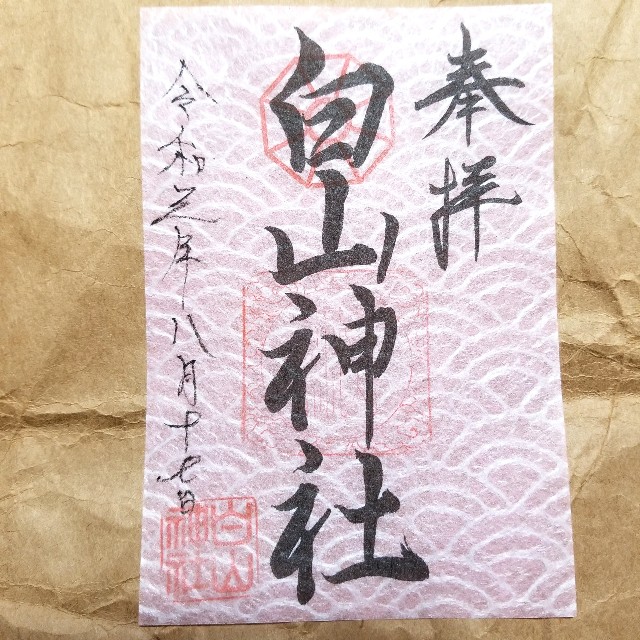 奉拝
白山神社
令和元年八月十七日
白山神社